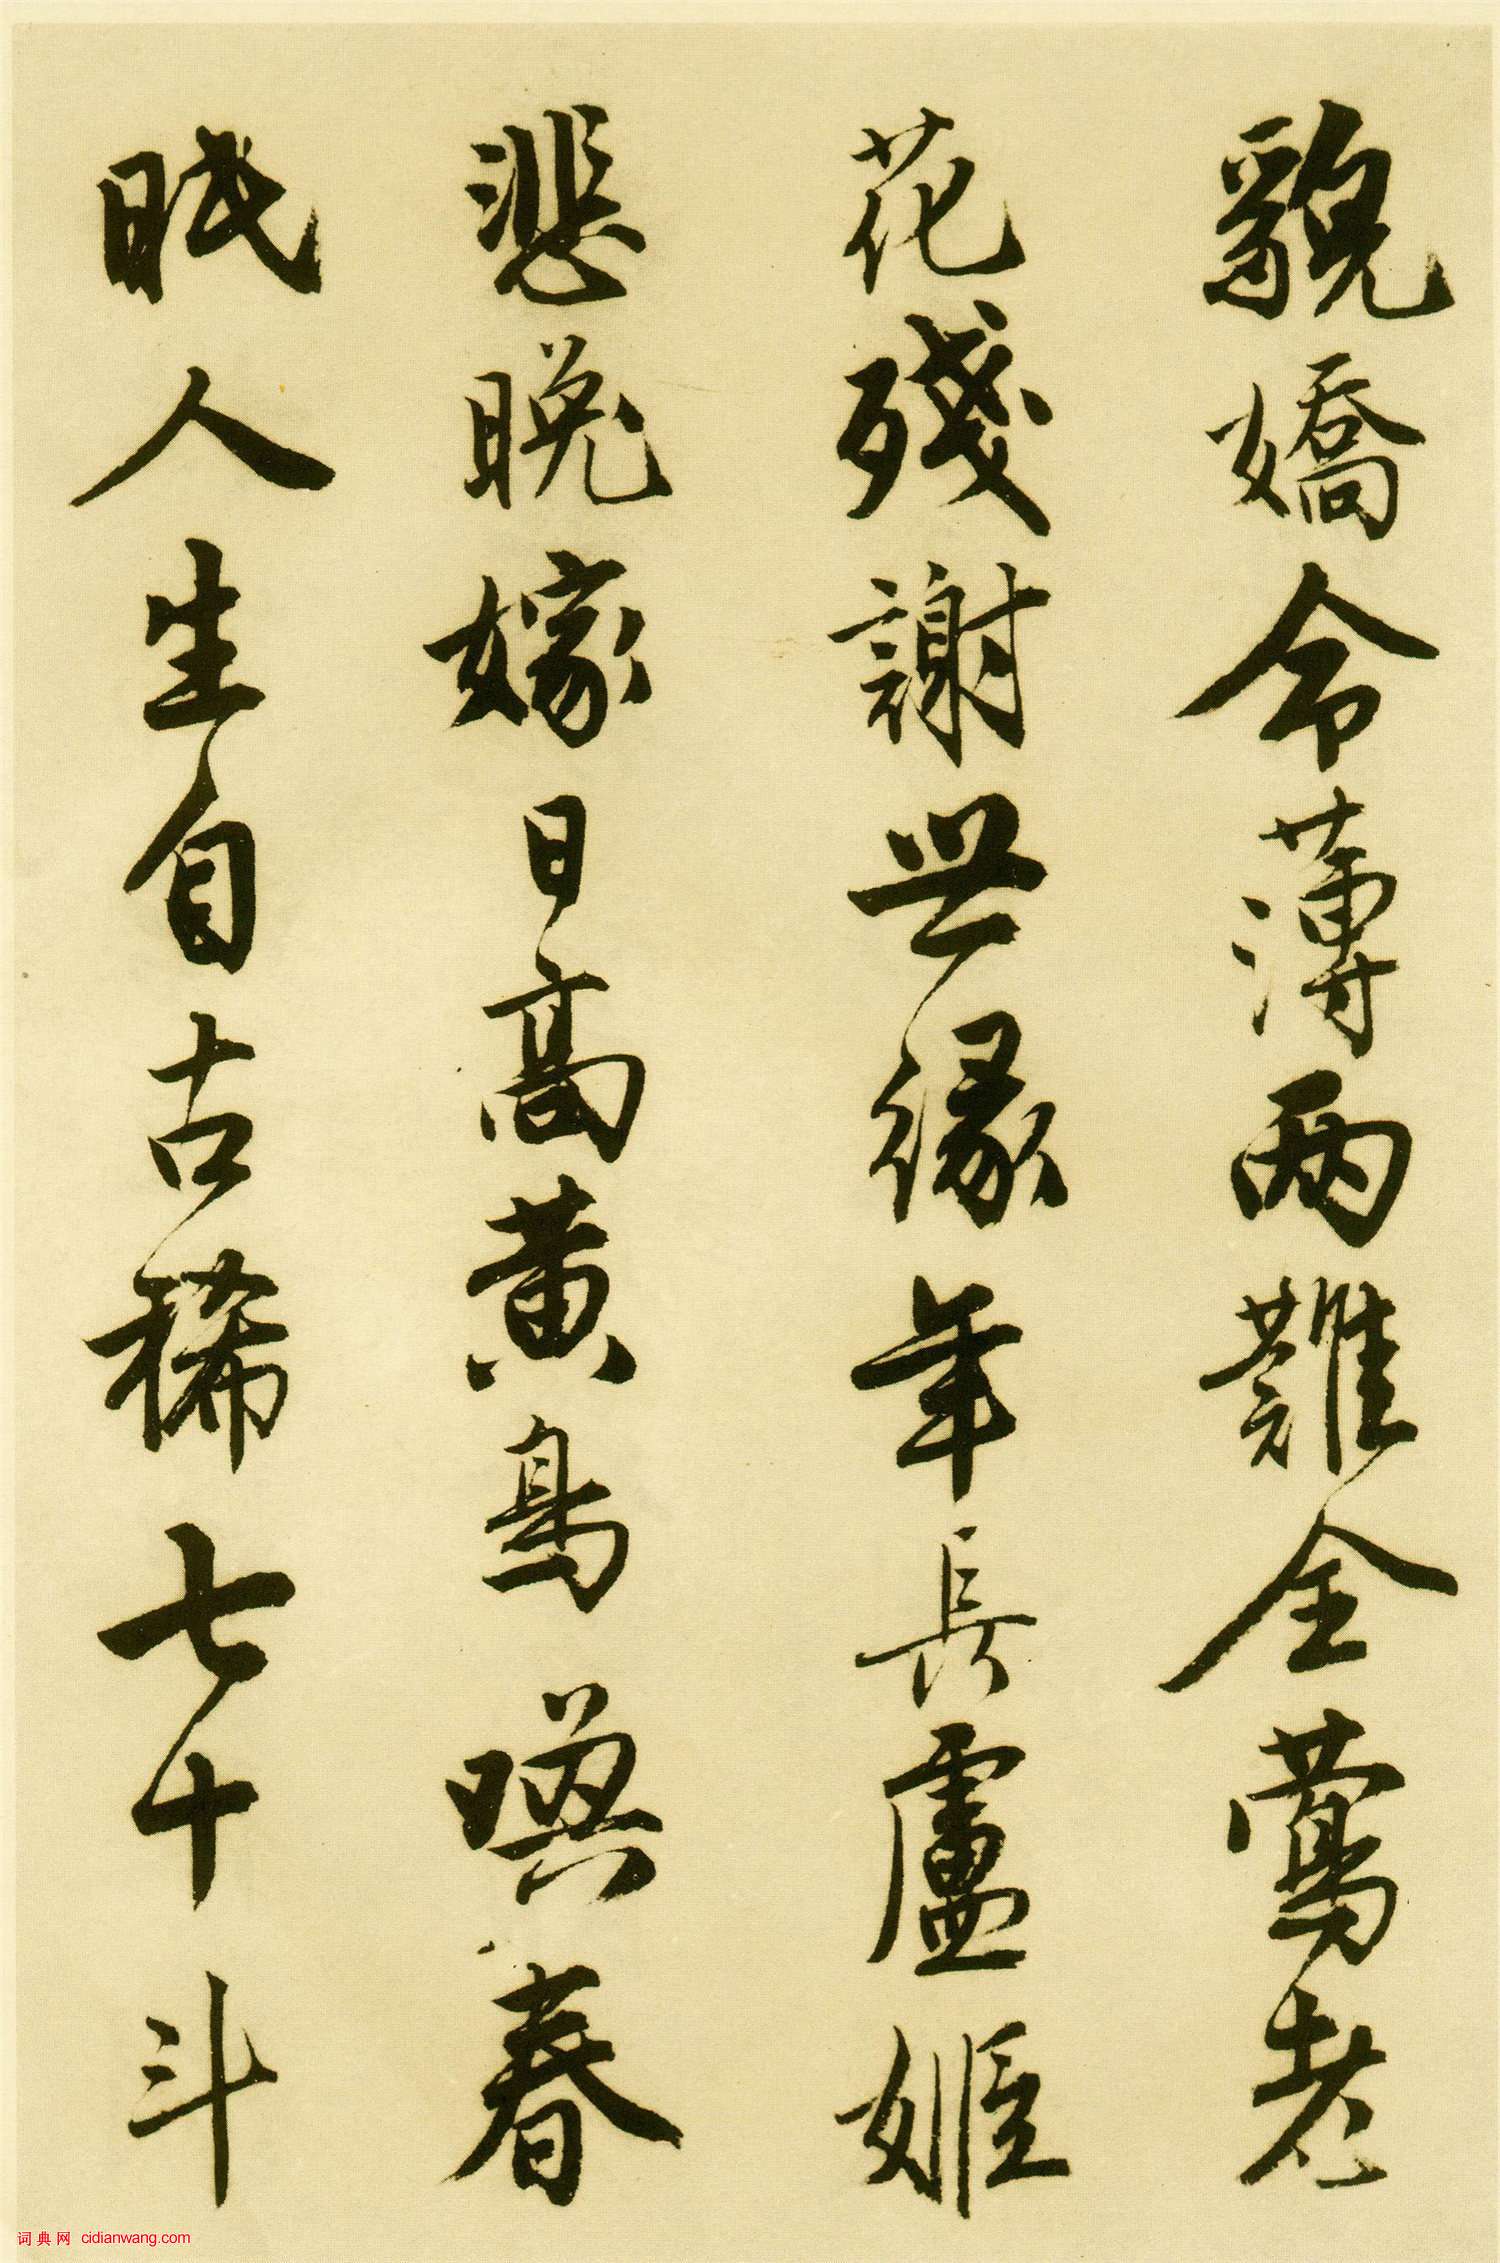 貌嬌命薄兩難全鶯老
花殘謝世緣年長盧姬
悲晚嫁日高黃鳥嘆春
眠人生自古稀七十斗
词典网 cidianwang.com